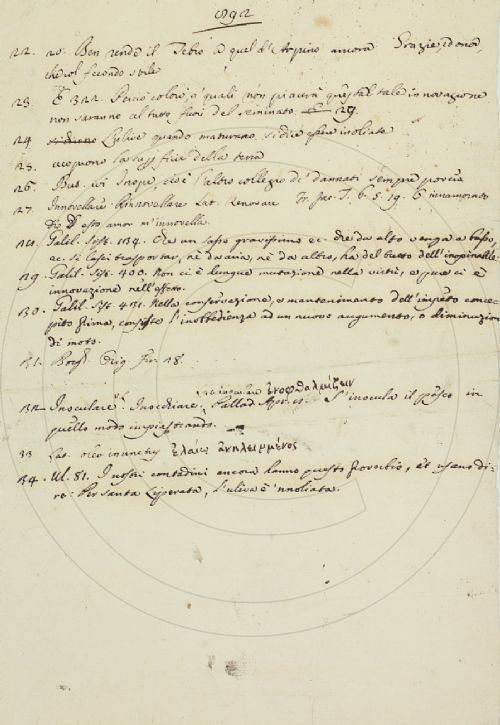 892
22. 20. Ben rende il Tebro a quel d'Arpino ancora Grazie, ed onor,
che
23 E 322. Perciò coloro, a' quali non piacerà questa tale innovazione
non saranno al tutto fuori del seminato. 29.
24 L'ulive quando maturano si dice esser inoliate
25. acquono la sup della terra
26. Bus. Inope, cioè l'altro collegio di' dannati sempre
27. Innovellare Rinnovellare Lat. Renovare Fr. Jac. T. 6. 5. 19. E innamorato
Di D esto amor m'innovella.
28. Galil. Sist. 134. Che un sasso gravissimo ec. che da alto venga a basso,
ec. si lasci trasportar, nè da aria, nè da altro, ha del tutto dell'inopinabile.
129. Galil. Sist. 400. Non ci è lungue mutazione nella virtù, e pur ci è
innovazione nell'effetto.
130. Galil. Sist. 431. Nella conservazione, o mantenimento dell'impeto conce-
pito prima, consiste l'inobbedienza ad un nuovo augumento, o diminuzion
di moto.
131. Borgh. Orig. Fir. 18.
ἐνοφθαλμίζειν
132 Inoculare. Inocchiare. Pallad. Apr. S'inocula il pesco in
quello modo impiastrando.
33 Lat. oleo inunctus ἐλαίῳ ἀνηλειμμένος
134. Ul. 81. I nostri contadini ancora hanno questo proverbio, et usano di-
re: Per Santa Liperata, l'uliva è 'nnoliata.